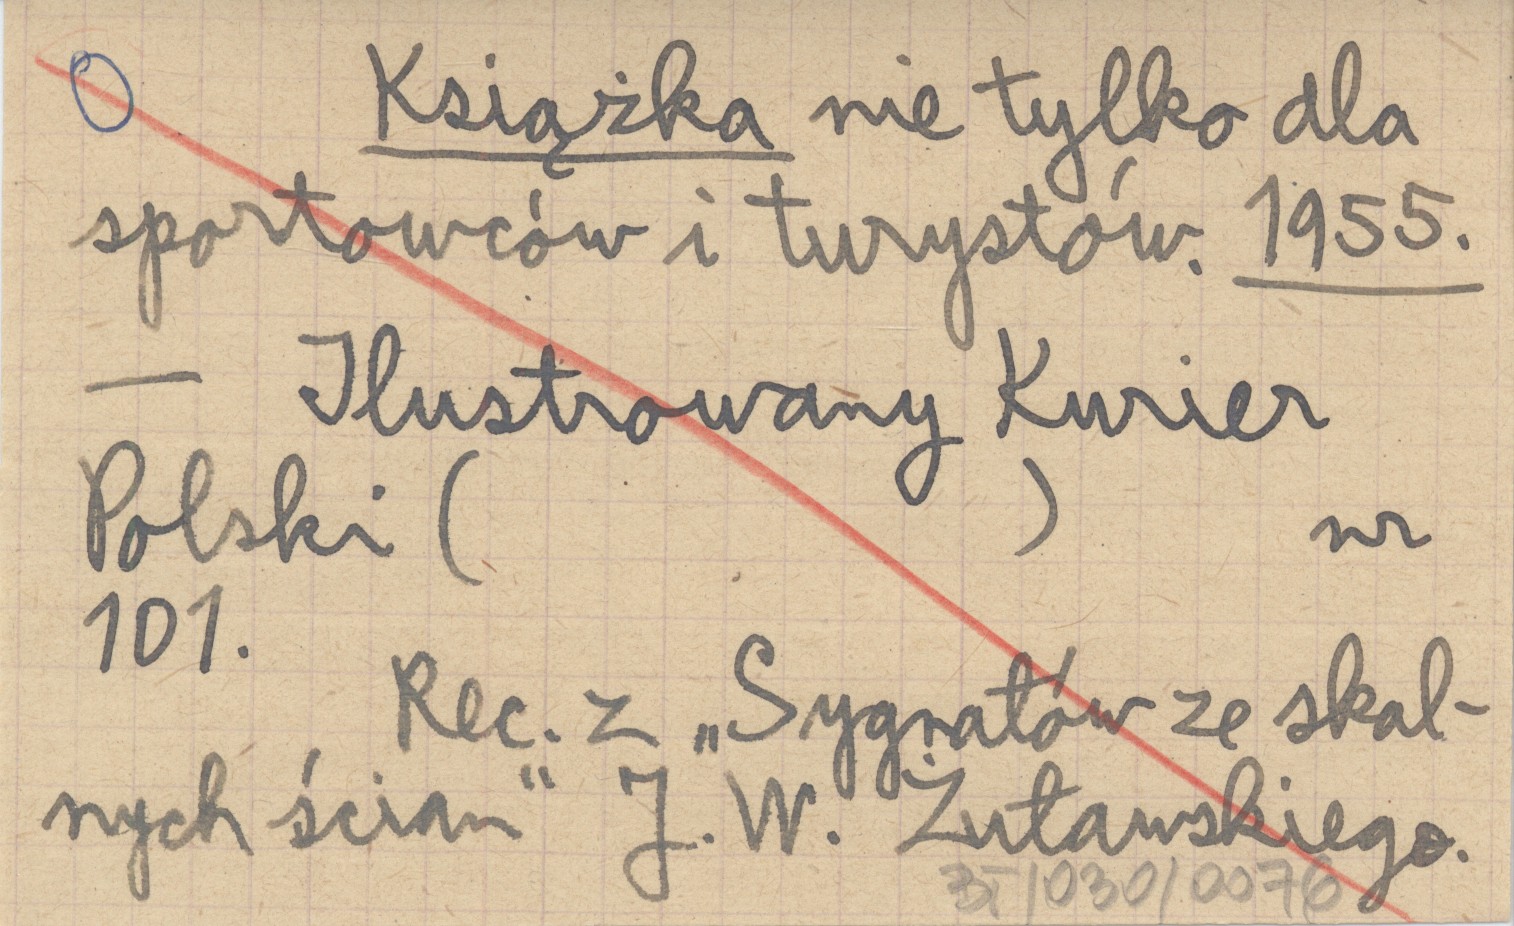 Książka nie tylko dla
sportowców i turystów. 1955.
— Ilustrowany Kurier
Polski ( ) nr
101.
Rec. z „Sygnałów ze skal-
nych ścian" J. W. Żuławskiego.
3I/030/0076